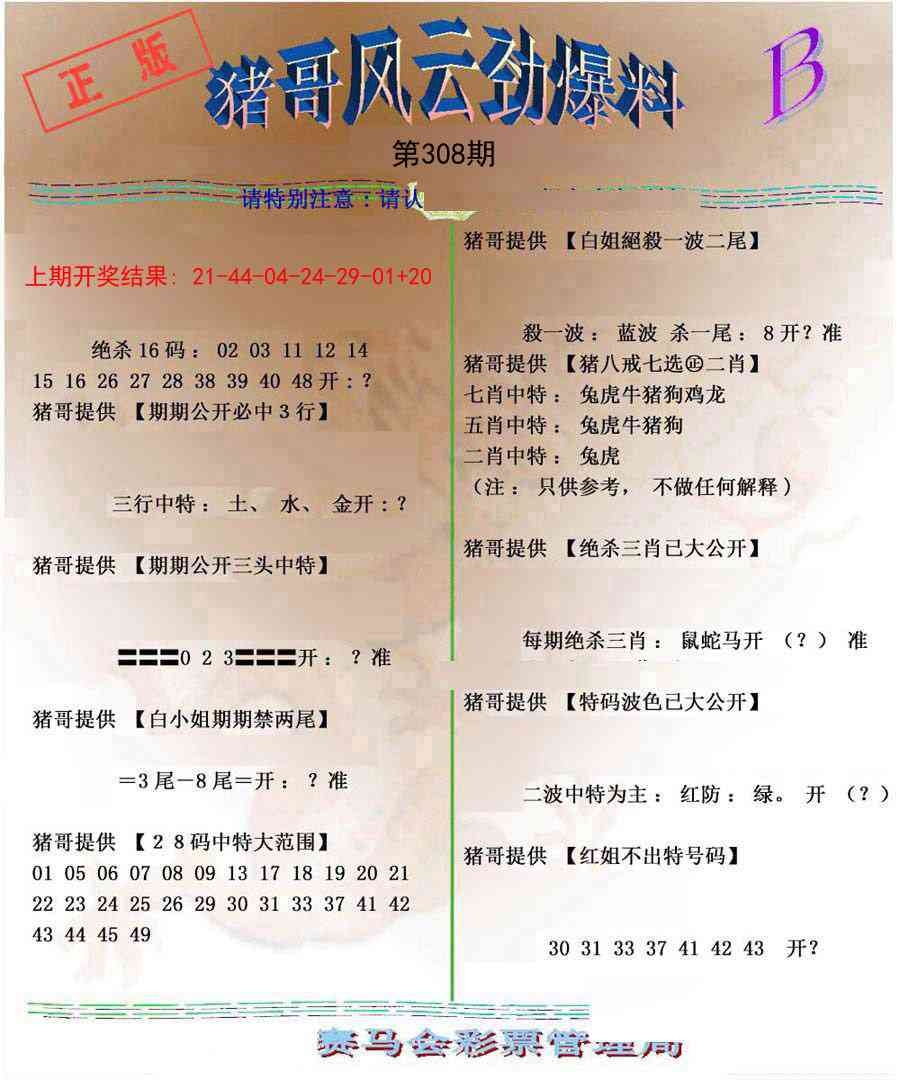 正版
猪哥风云劲爆料
B
第308期
请特别注意：请认
上期开奖结果: 21-44-04-24-29-01+20
绝杀16码：02 03 11 12 14
15 16 26 27 28 38 39 40 48开：？
猪哥提供 【期期公开必中3行】
三行中特：土、水、金开：？
猪哥提供 【期期公开三头中特】
〓〓〓0 2 3〓〓〓开：？准
猪哥提供 【白小姐期期禁两尾】
＝3尾－8尾＝开：？准
猪哥提供 【２８码中特大范围】
01 05 06 07 08 09 13 17 18 19 20 21
22 23 24 25 26 29 30 31 33 37 41 42
43 44 45 49
猪哥提供 【白姐絕殺一波二尾】
殺一波：蓝波 杀一尾：8开？准
猪哥提供 【猪八戒七选㊣二肖】
七肖中特：兔虎牛猪狗鸡龙
五肖中特：兔虎牛猪狗
二肖中特：兔虎
（注：只供参考，不做任何解释)
猪哥提供 【绝杀三肖已大公开】
每期绝杀三肖：鼠蛇马开（？）准
猪哥提供 【特码波色已大公开】
二波中特为主：红防：绿。开（？）
猪哥提供 【红姐不出特号码】
30 31 33 37 41 42 43 开？
赛马会彩票管理局